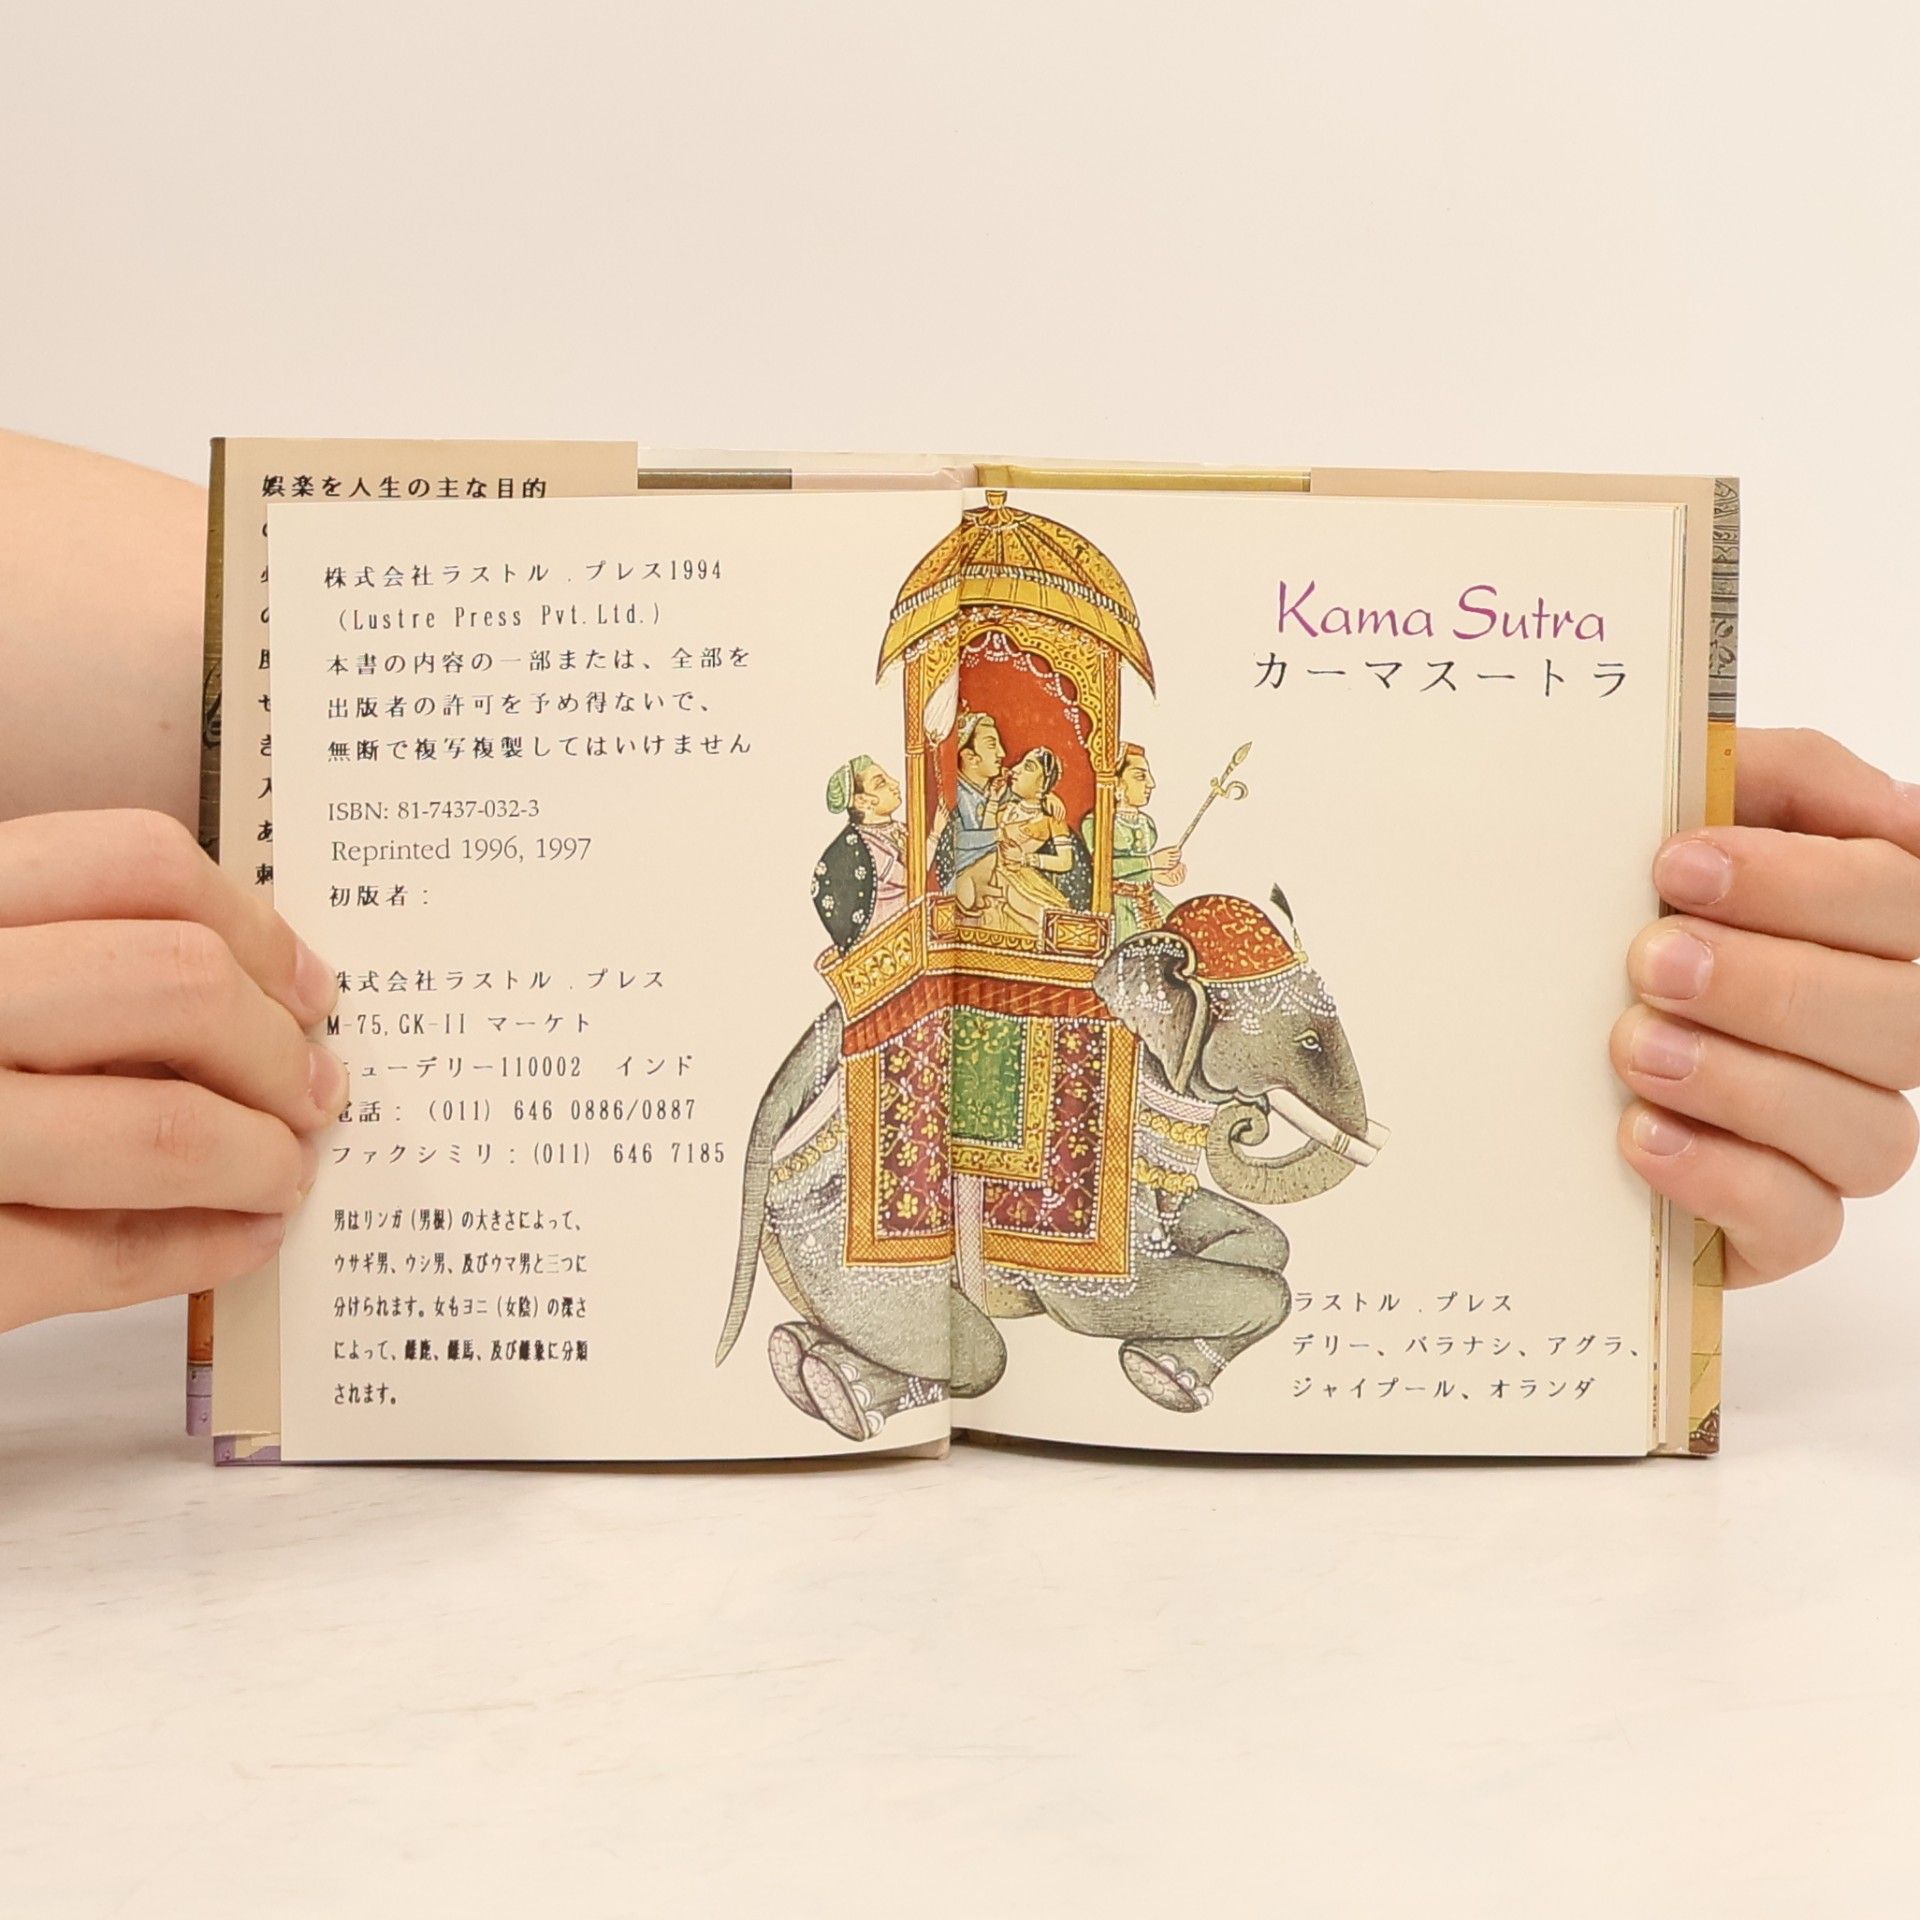 娯楽を人生の主な目的
株式会社ラストル .プレス1994
(Lustre Press Pvt.Ltd.)
本書の内容の一部または、全部を
出版者の許可を予め得ないで、
無断で複写複製してはいけません
ISBN: 81-7437-032-3
Reprinted 1996, 1997
初版者:
株式会社ラストル .プレス
M-75,GK-II マーケト
ニューデリー110002 インド
電話: (011) 646 0886/0887
ファクシミリ:(011) 646 7185
男はリンガ(男根)の大きさによって、
ウサギ男、ウシ男、及びウマ男と三つに
分けられます。女もヨニ(女陰)の深さ
によって、雌鹿、雌馬、及び雌象に分類
されます。
Kama Sutra
カーマスートラ
ラストル .プレス
デリー、バラナシ、アグラ、
ジャイプール、オランダ